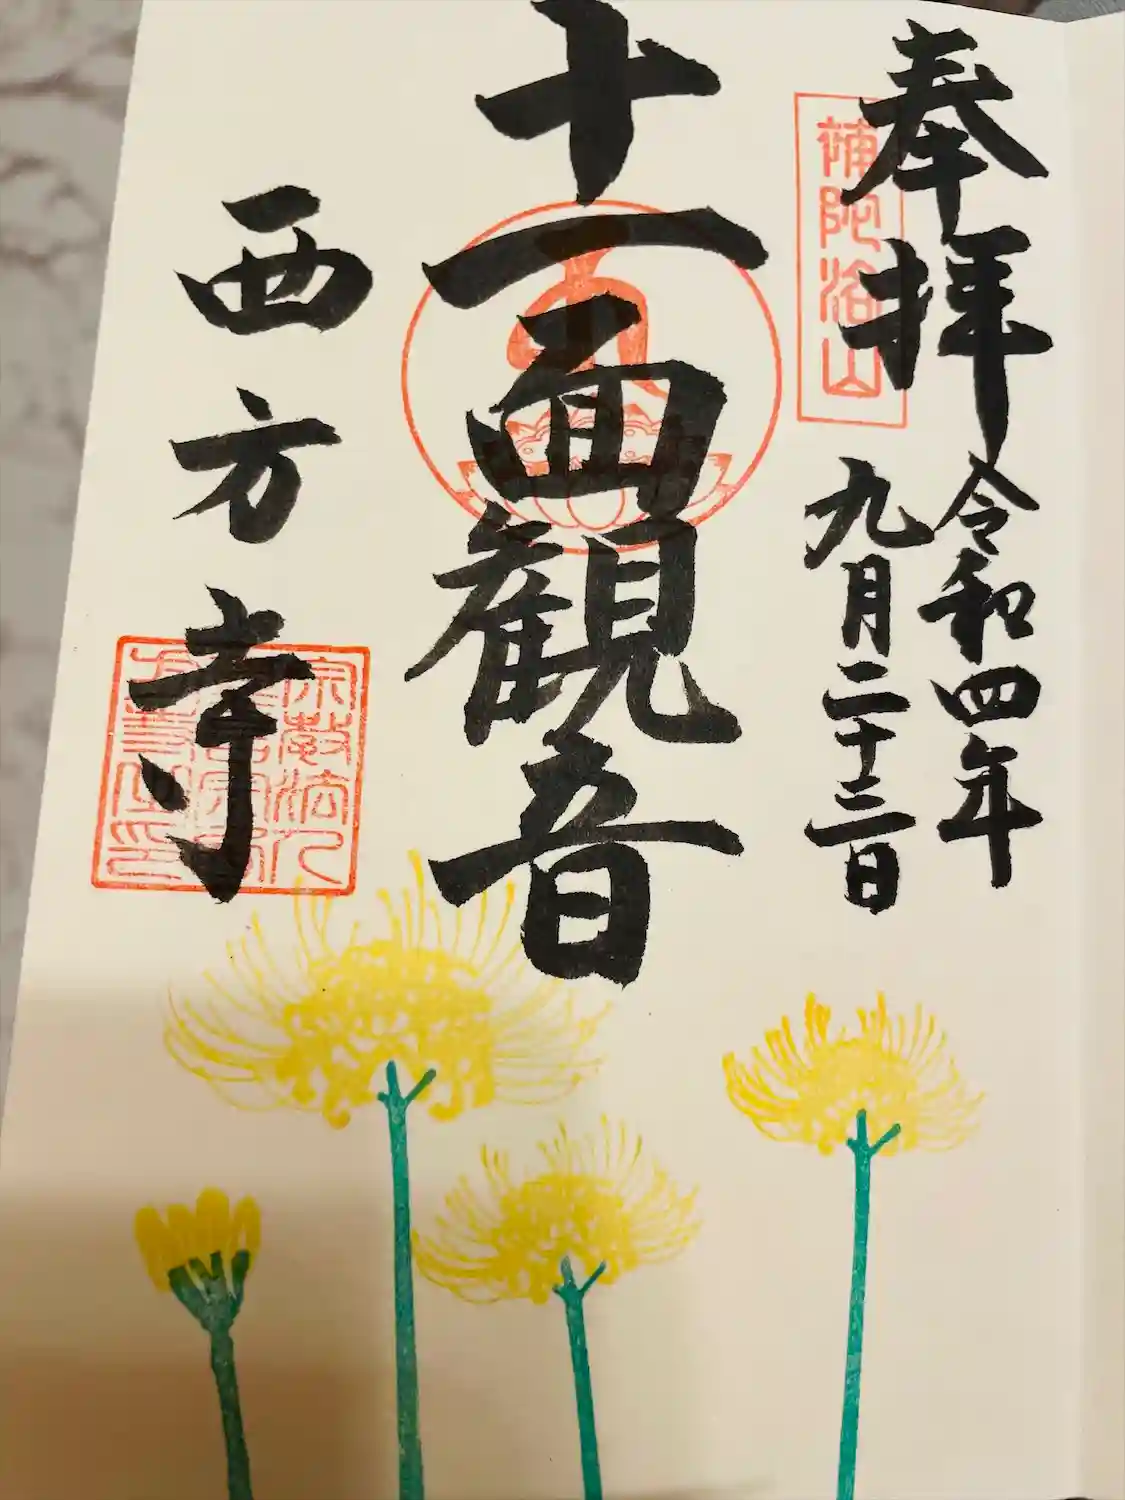 奉拝
補陀洛山
令和四年
九月二十三日
十一面観音
西方寺
宗教法人